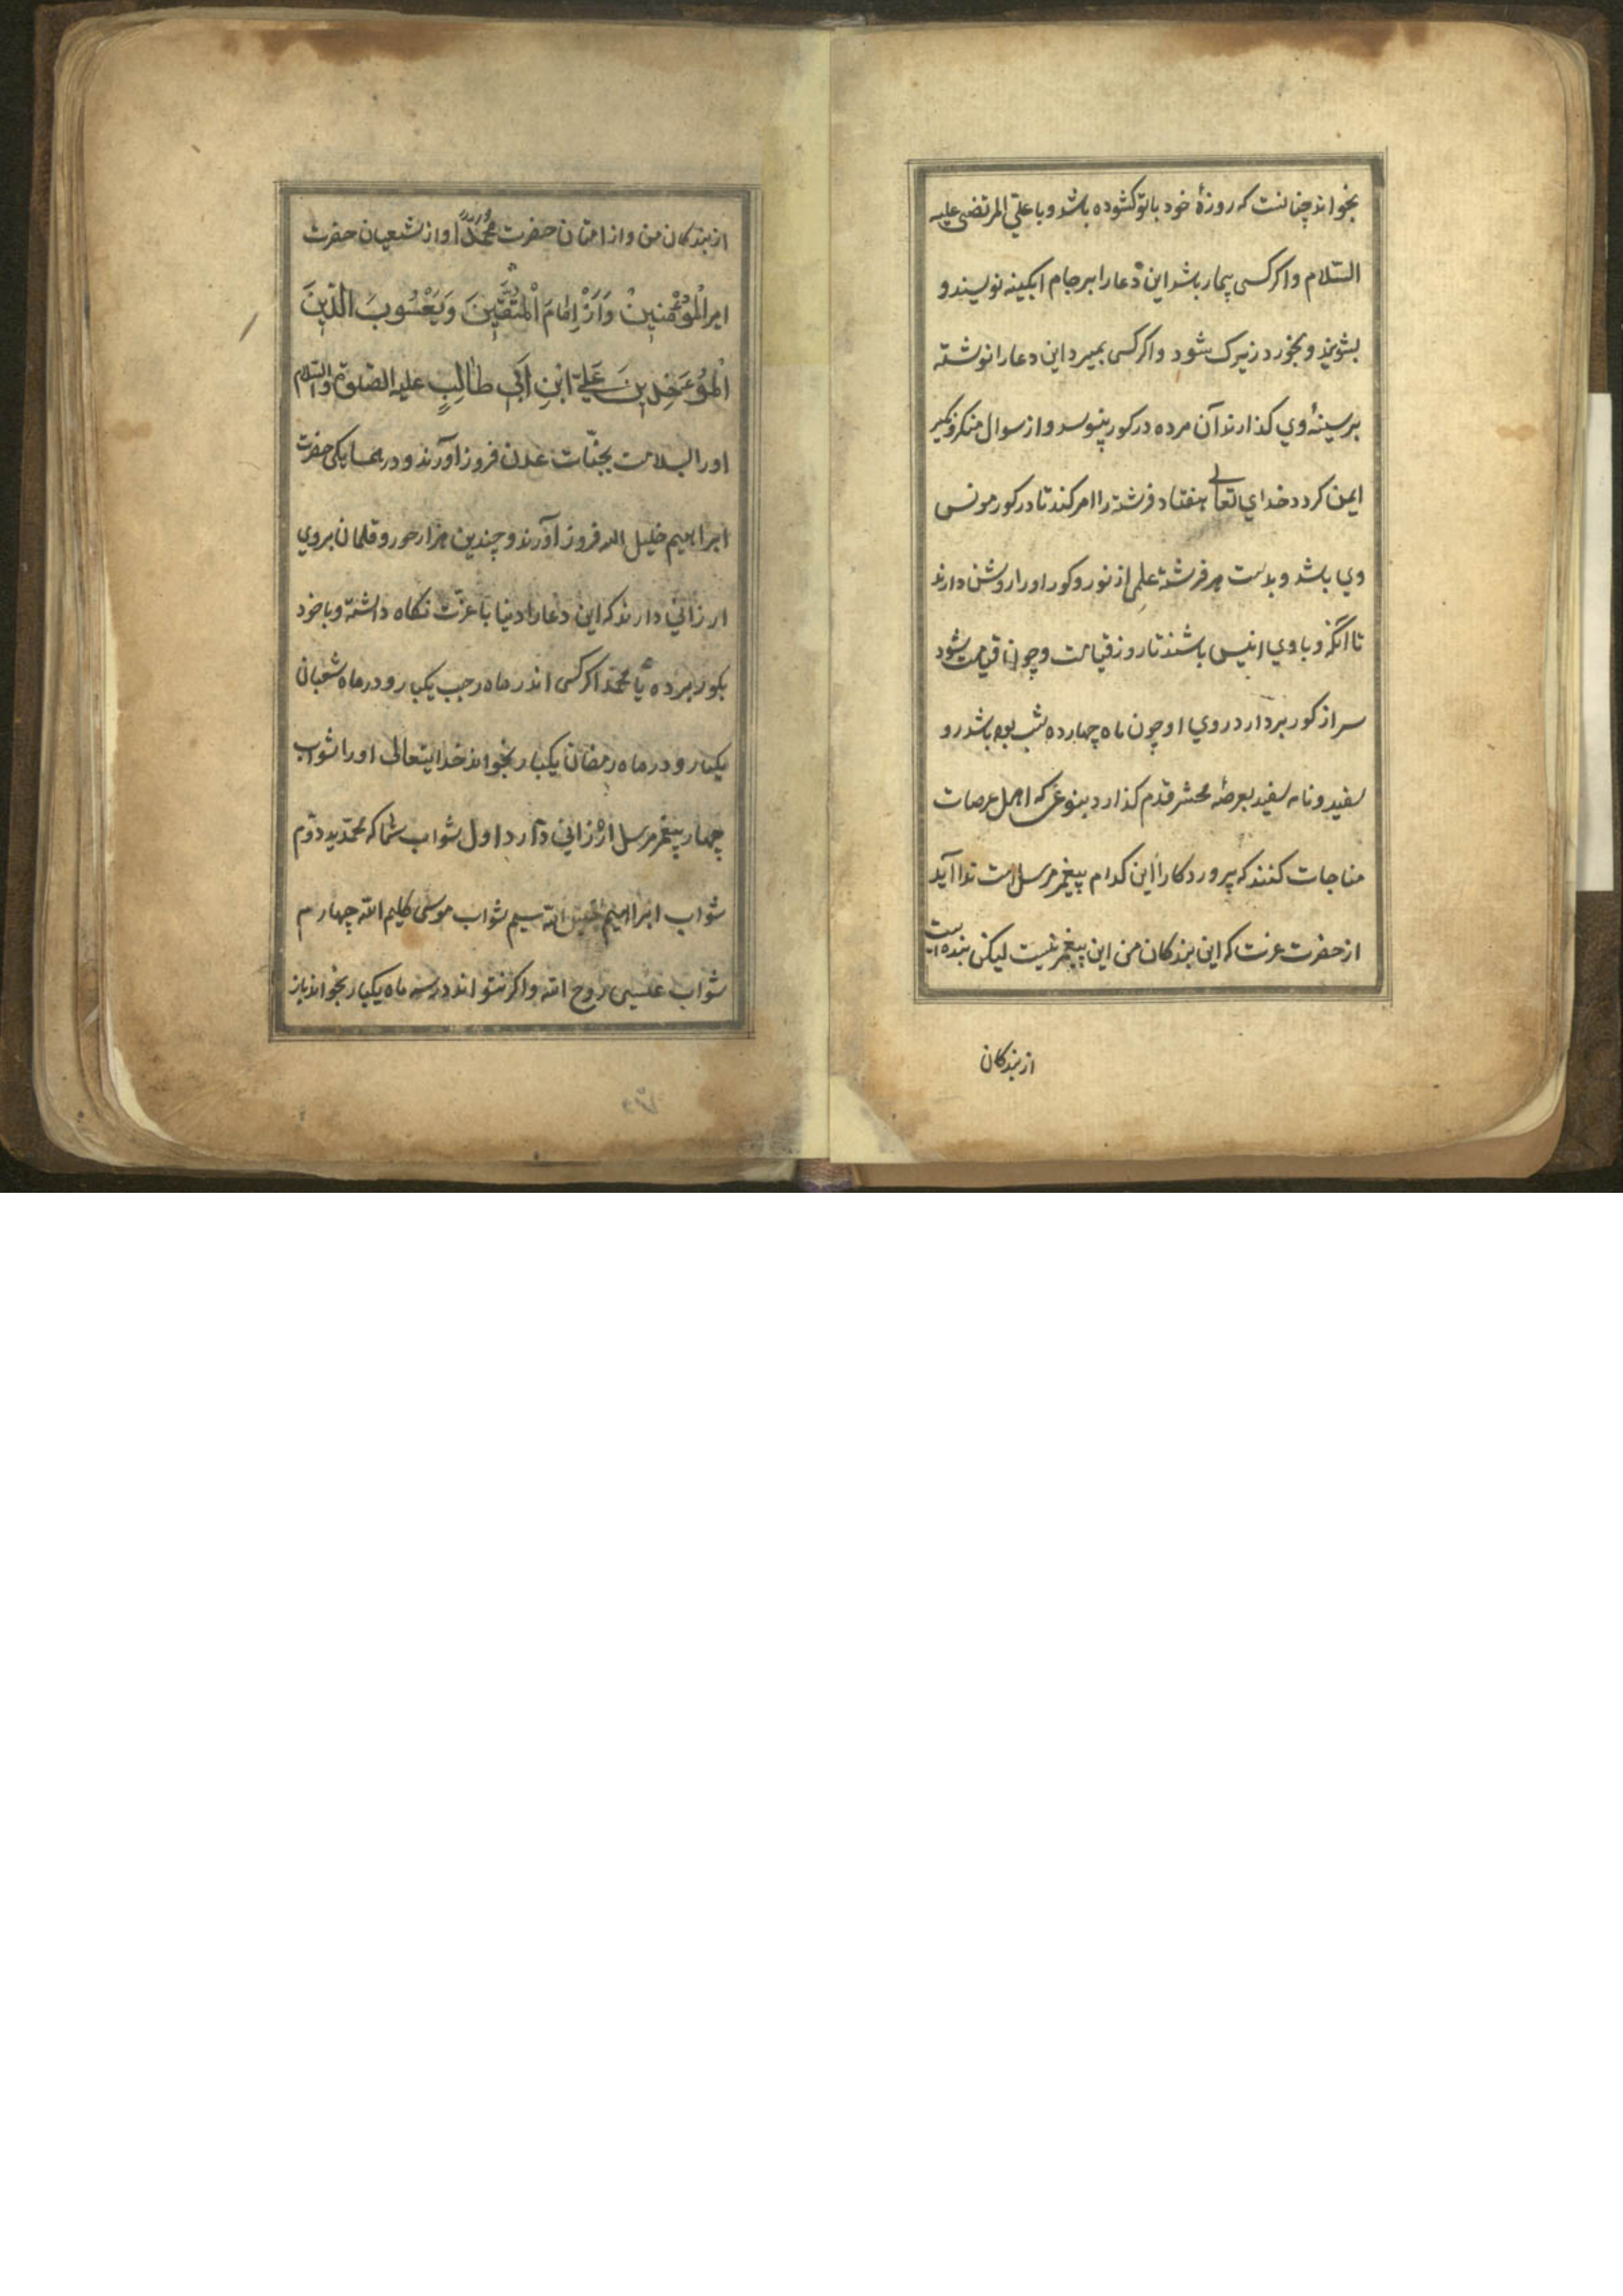 بخواند چنانست که روزهٔ خود با تو کشوده باشد و با علیّ المرتضی علیه
السّلام و اکر کسی بیمار باشد این دعا را بر جام ابکینه نویسند و
بشویند و بخورد زیرک شود و اکر کسی بمیرد این دعا را نوشته
بر سینهٔ وي کذارند آن مرده در کور نپوسد و از سوال منکر و نکیر
ایمن کردد خداي تعالی هفتاد فرشته را امر کند تا در کور مونس
وي باشد و بدست هر فرشتهٔ علمی از نور و کور او را روشن دارند
تا انکه و با وي انیس باشند تا روز قیامت و چون قیامت شود
سر از کور بردارد روي او چون ماه چهارده شب بوه باشد رو
سفید و نامه سفید بعرصهٔ محشر قدم کذارد بنوعی که اهل عرصات
مناجات کنند که پروردکارا این کدام پیغمبر مرسل است ندا آید
از حضرت عزت که این بندکان من این پیغمبر نیست لیکن بنده ایست
از بندکان
از بندکان من و از امتان حضرت محمّد و از شعیان حضرت
امیر المؤمنین و امام المتّقین و یعسوب الدّین
علیّ ابن ابی طالب علیه الصّلوة والسّلام
او را بسلامت بجنّات عدن فروز آورند و در همسایکی حضرت
ابراهیم خلیل الله فروز آورند و چندین هزار حور و قلمان بروي
ارزانی دارند که این دعا را دنیا با عزّت نکاه داشته و با خود
بکور برده یا محمّد اکر کسی اندر ماه رجب یکبار و در ماه شعبان
یکبار و در ماه رمضان یکبار بخواند خدایتعالی او را ثواب
چهار پیغمبر مرسل ارزانی دارد اول ثواب شما که محمّدید دوّم
ثواب ابراهیم خلیل الله سیم ثواب موسی کلیم الله چهارم
ثواب عیسی روح الله و اکر نتواند در سه ماه یکبار بخواند باز